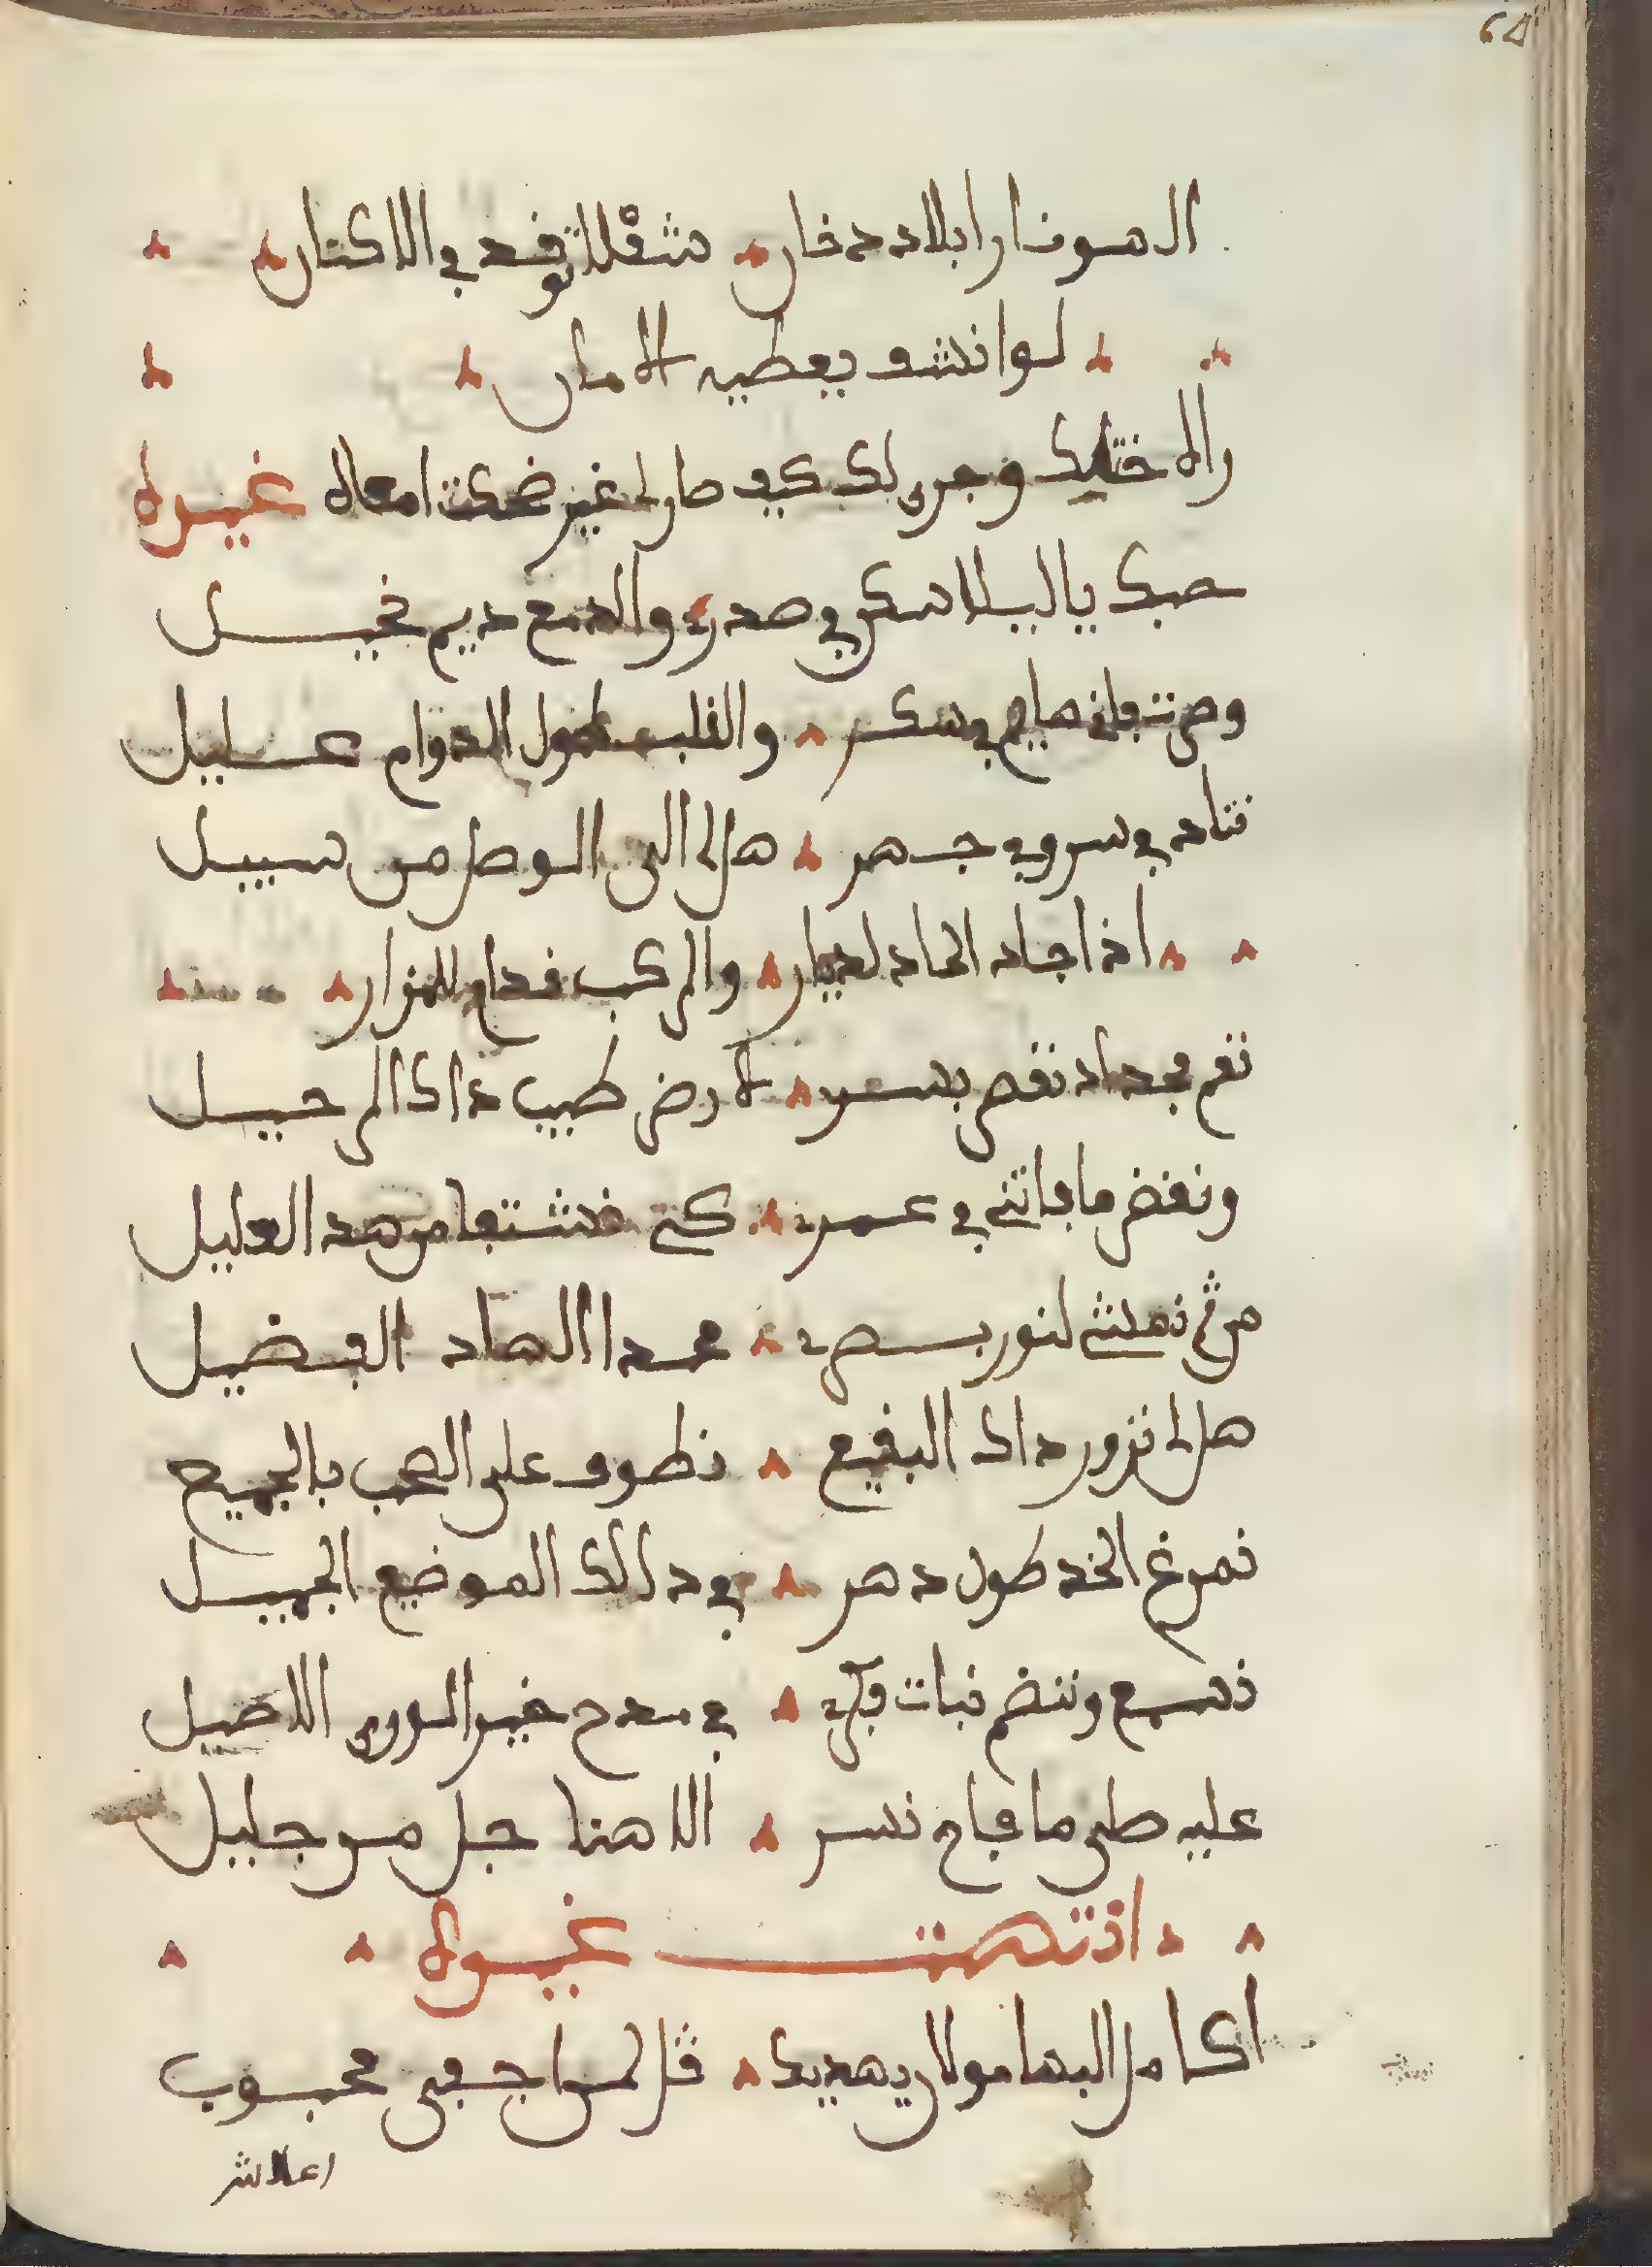 64
الهوى نارا بلاد دخان شعلا توقد في الاكنان
لوا نشو يعطيه الامان
راه ختلك وجرى لك كيف صار لي غير ضحكت امعاه غيره
حبك يا البلا سكن في صدري والدمع ديم نخيل
وصرت فاني صايح وسكر والقلب طول الدوام عليل
نناد في سر وفي جهر هل لي الى الوصل من سبيل
اذا جاد الحاد لديار والركب قدام للمزار
نغم مجداد نقص بسر لارض طيب داك الرحيل
ونغض ما فاتني في عمر كي نشتفا من هد العليل
من ثم نمشي لنور بصر محمدا الهاد الفضيل
هل لي نزور داك البقيع نطوف على الصحب بالجميع
نمرغ الخد طول دهر في دالك الموضع الجميل
نسمع وننضم نبات فكر في مدح خير الورى الاصيل
عليه صلى ما فاح نسر الاهنا جل من جليل
انتهت غيره
اكامل البها مولاي يهديك قل لمن اجفى محبوب
اعلاش